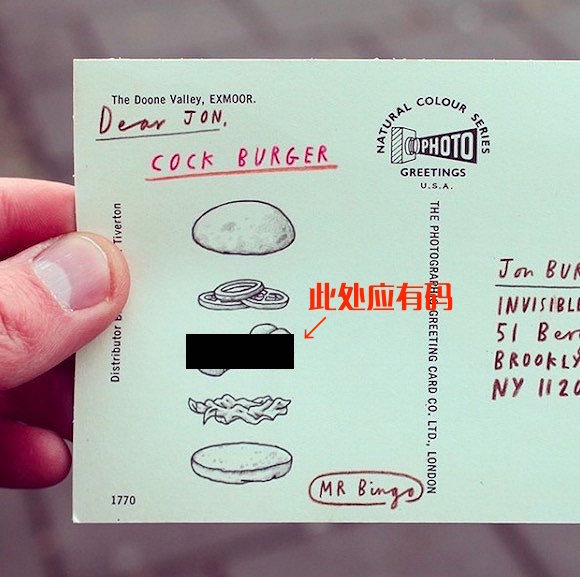 The Doone Valley, EXMOOR.
Dear JON,
COCK BURGER
NATURAL COLOUR SERIES
PHOTO
GREETINGS
U.S.A.
此处应有码
Distributor
Tiverton
THE PHOTOGRAPHIC GREETING CARD CO. LTD., LONDON
Jon
INVISIBLE
51
BROOKLY
NY 1120
MR Bingo
1770